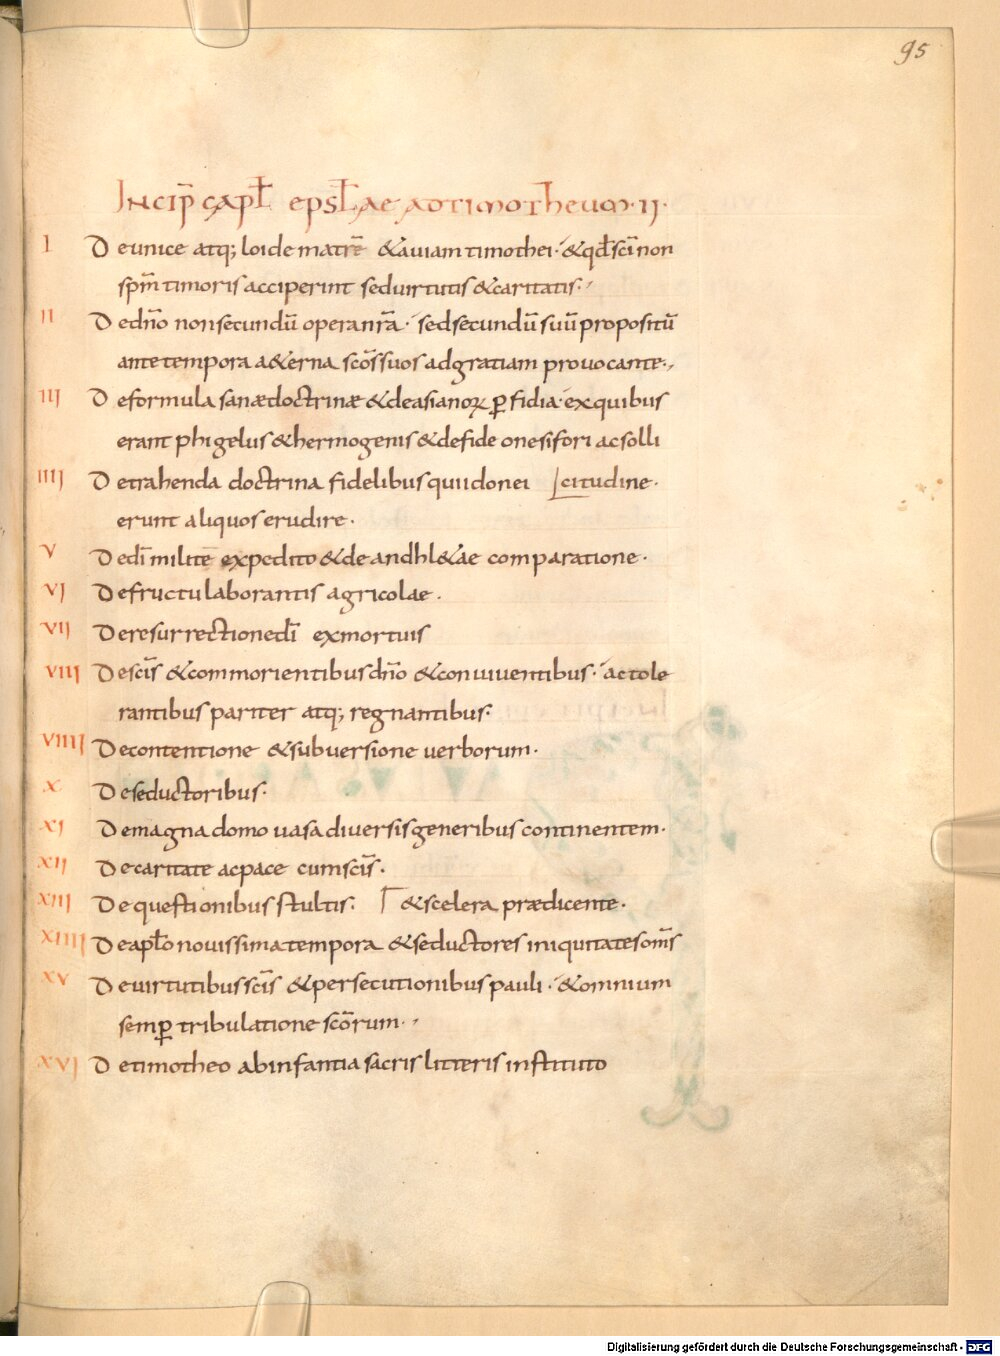 95
Incip̄ capł epsłae ad timotheum · II ·
I De unice atq; loide matrē & auiam timothei · & qđ sc̄i non
sp̄m timoris acciperint sed uirtutis & caritatis ·
II De dn̄o non secundū opera nr̄a · sed secundū suū propositū
ante tempora a&erna sc̄os suos ad gratiam prouocante ·
III De formula sanæ doctrinæ & de asianoꝝ ꝑfidia · ex quibus
erant phigelus & hermogenis & de fide onesifori ac solli
IIII De trahenda doctrina fidelibus qui idonei citudine ·
erunt aliquos erudire ·
V De dī milite expedito & de andhl&ae comparatione ·
VI De fructu laborantis agricolae ·
VII De resurrectione dn̄i ex mortuis
VIII De sc̄is & commorientibus dn̄o & conuiuentibus · ac tole
rantibus pariter atq; regnantibus ·
VIIII De contentione & subuersione uerborum ·
X De seductoribus ·
XI De magna domo uasa diuersis generibus continentem ·
XII De caritate ac pace cum sc̄is ·
XIII De questionibus stultis · & scelera prædicente ·
XIIII De apło nouissima tempora & seductores iniquitates om̄s
XV De uirtutibus sc̄is & persecutionibus pauli · & omnium
semꝑ tribulatione sc̄orum ·
XVI De timotheo ab infantia sacris litteris instituto
Digitalisierung gefördert durch die Deutsche Forschungsgemeinschaft - DFG